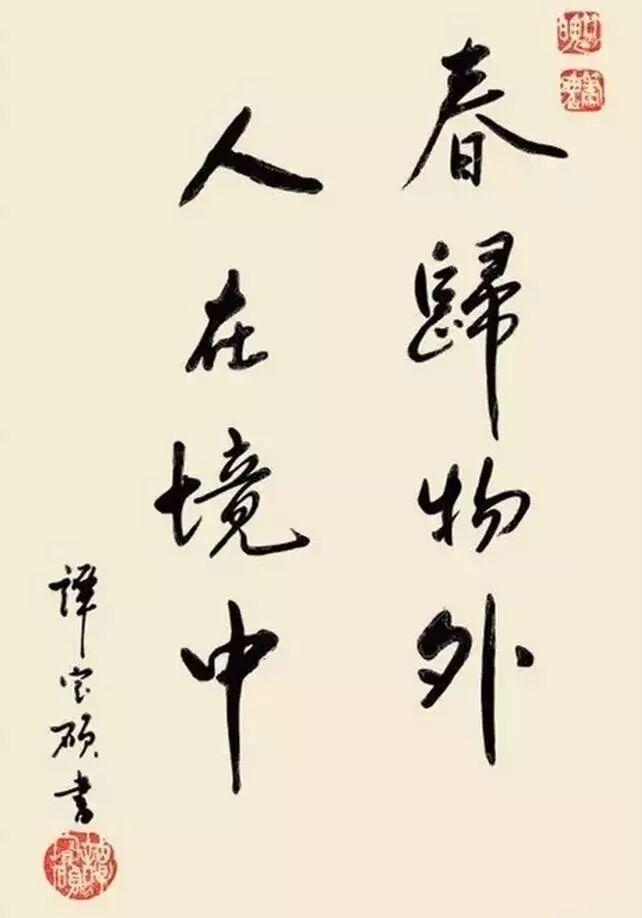 春歸物外
人在境中
譚宝碩書